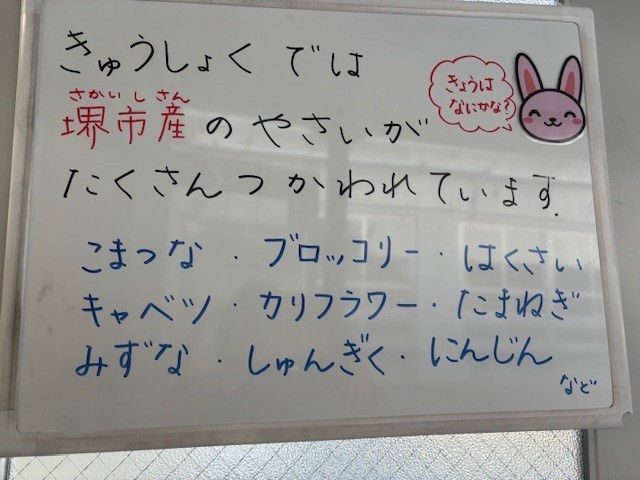 きゅうしょくでは
きょうは
なにかな?
さかいしさん
堺市産のやさいが
たくさんつかわれています.
こまつな・ブロッコリー・はくさい
キャベツ・カリフラワー・たまねぎ
みずな・しゅんぎく・にんじん
など